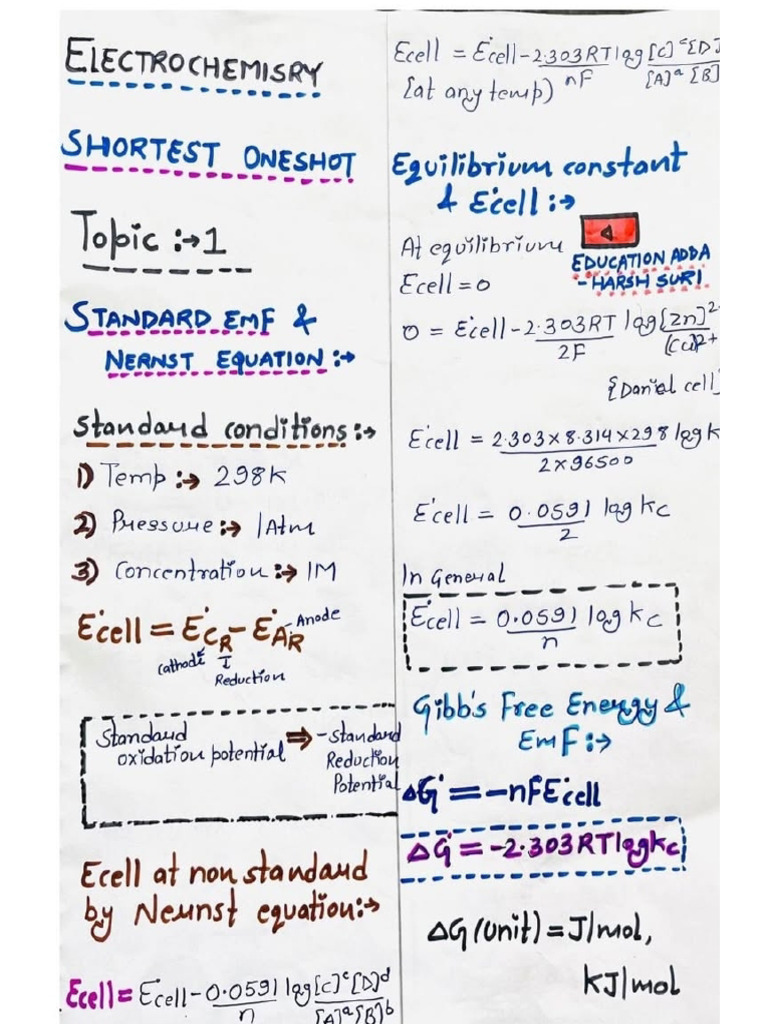 ELECTROCHEMISRY
SHORTEST ONESHOT
Topic :→ 1
STANDARD EMF &
NERNST EQUATION :→
Standard conditions :→
1) Temp :→ 298K
2) Pressure :→ 1Atm
3) Concentration :→ 1M
E°cell = E°CR - E°AR - Anode
Cathode I
Reduction
Standard ⇒ -standard
oxidation potential Reduction
Potential
Ecell at non standard
by Nernst equation :→
Ecell = E°cell - 0.0591 log [C]^c [D]^d
n [A]^a [B]^b
Ecell = E°cell - 2.303RT log [C]^c [D]
nF [A]^a [B]
[at any temp)
Equilibrium constant
& E°cell :→
At equilibrium
EDUCATION ADDA
- HARSH SURI
Ecell = 0
0 = E°cell - 2.303RT log [Zn]^2
2F [Cu]^2+
{Daniel cell}
E°cell = 2.303 x 8.314 x 298 log K
2 x 96500
E°cell = 0.0591 log Kc
2
In General
E°cell = 0.0591 log Kc
n
Gibb's Free Energy &
EmF :→
ΔG° = -nFE°cell
ΔG° = -2.303RT log Kc
ΔG (unit) = J/mol,
KJ/mol